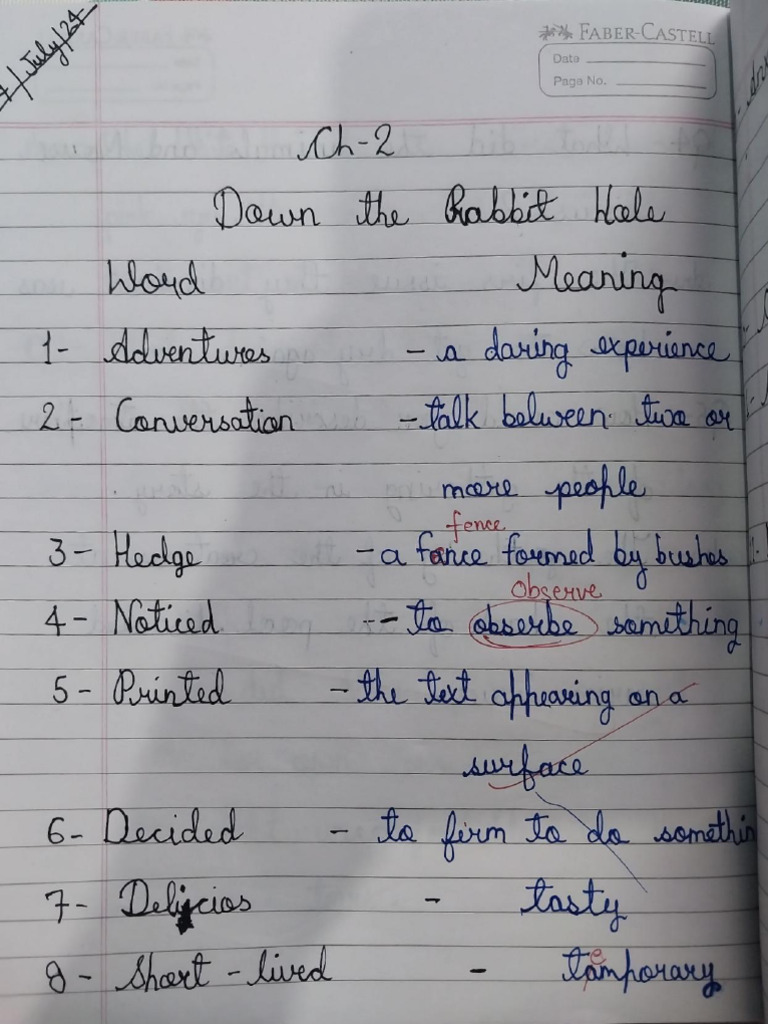 /July/24
FABER-CASTELL
Date
Page No.
Ch-2
Down the Rabbit Hole
Word Meaning
1- Adventures - a daring experience
2- Conversation - talk between two or
more people
fence
3- Hedge - a fance formed by bushes
Observe
4- Noticed -- to obserbe something
5- Printed - the text appearing on a
surface
6- Decided - to firm to do somethin
7- Delicios - tasty
e
8- Short-lived - tamporary